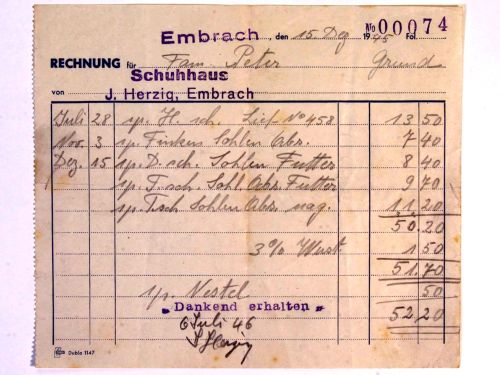 Embrach, den 15. Dez. 1945 No 00074 Fol.
RECHNUNG für Fam. Peter Grund
Schuhhaus
von J. Herzig, Embrach
Juli 28 sp. H. sch. Lief No 458 13 50
Nov. 3 sp. Finken Sohlen Abs. 7 40
Dez. 15 sp. D. sch. Sohlen Futter 8 40
sp. T. sch. Sohl. Abs. Futter 9 70
sp. T sch Sohlen Abs. nag. 11 20
50.20
3% Wust. 1 50
51.70
sp. Nestel 50
„Dankend erhalten" 52 20
6 Juli 46
J Herzig
Dublo 1147